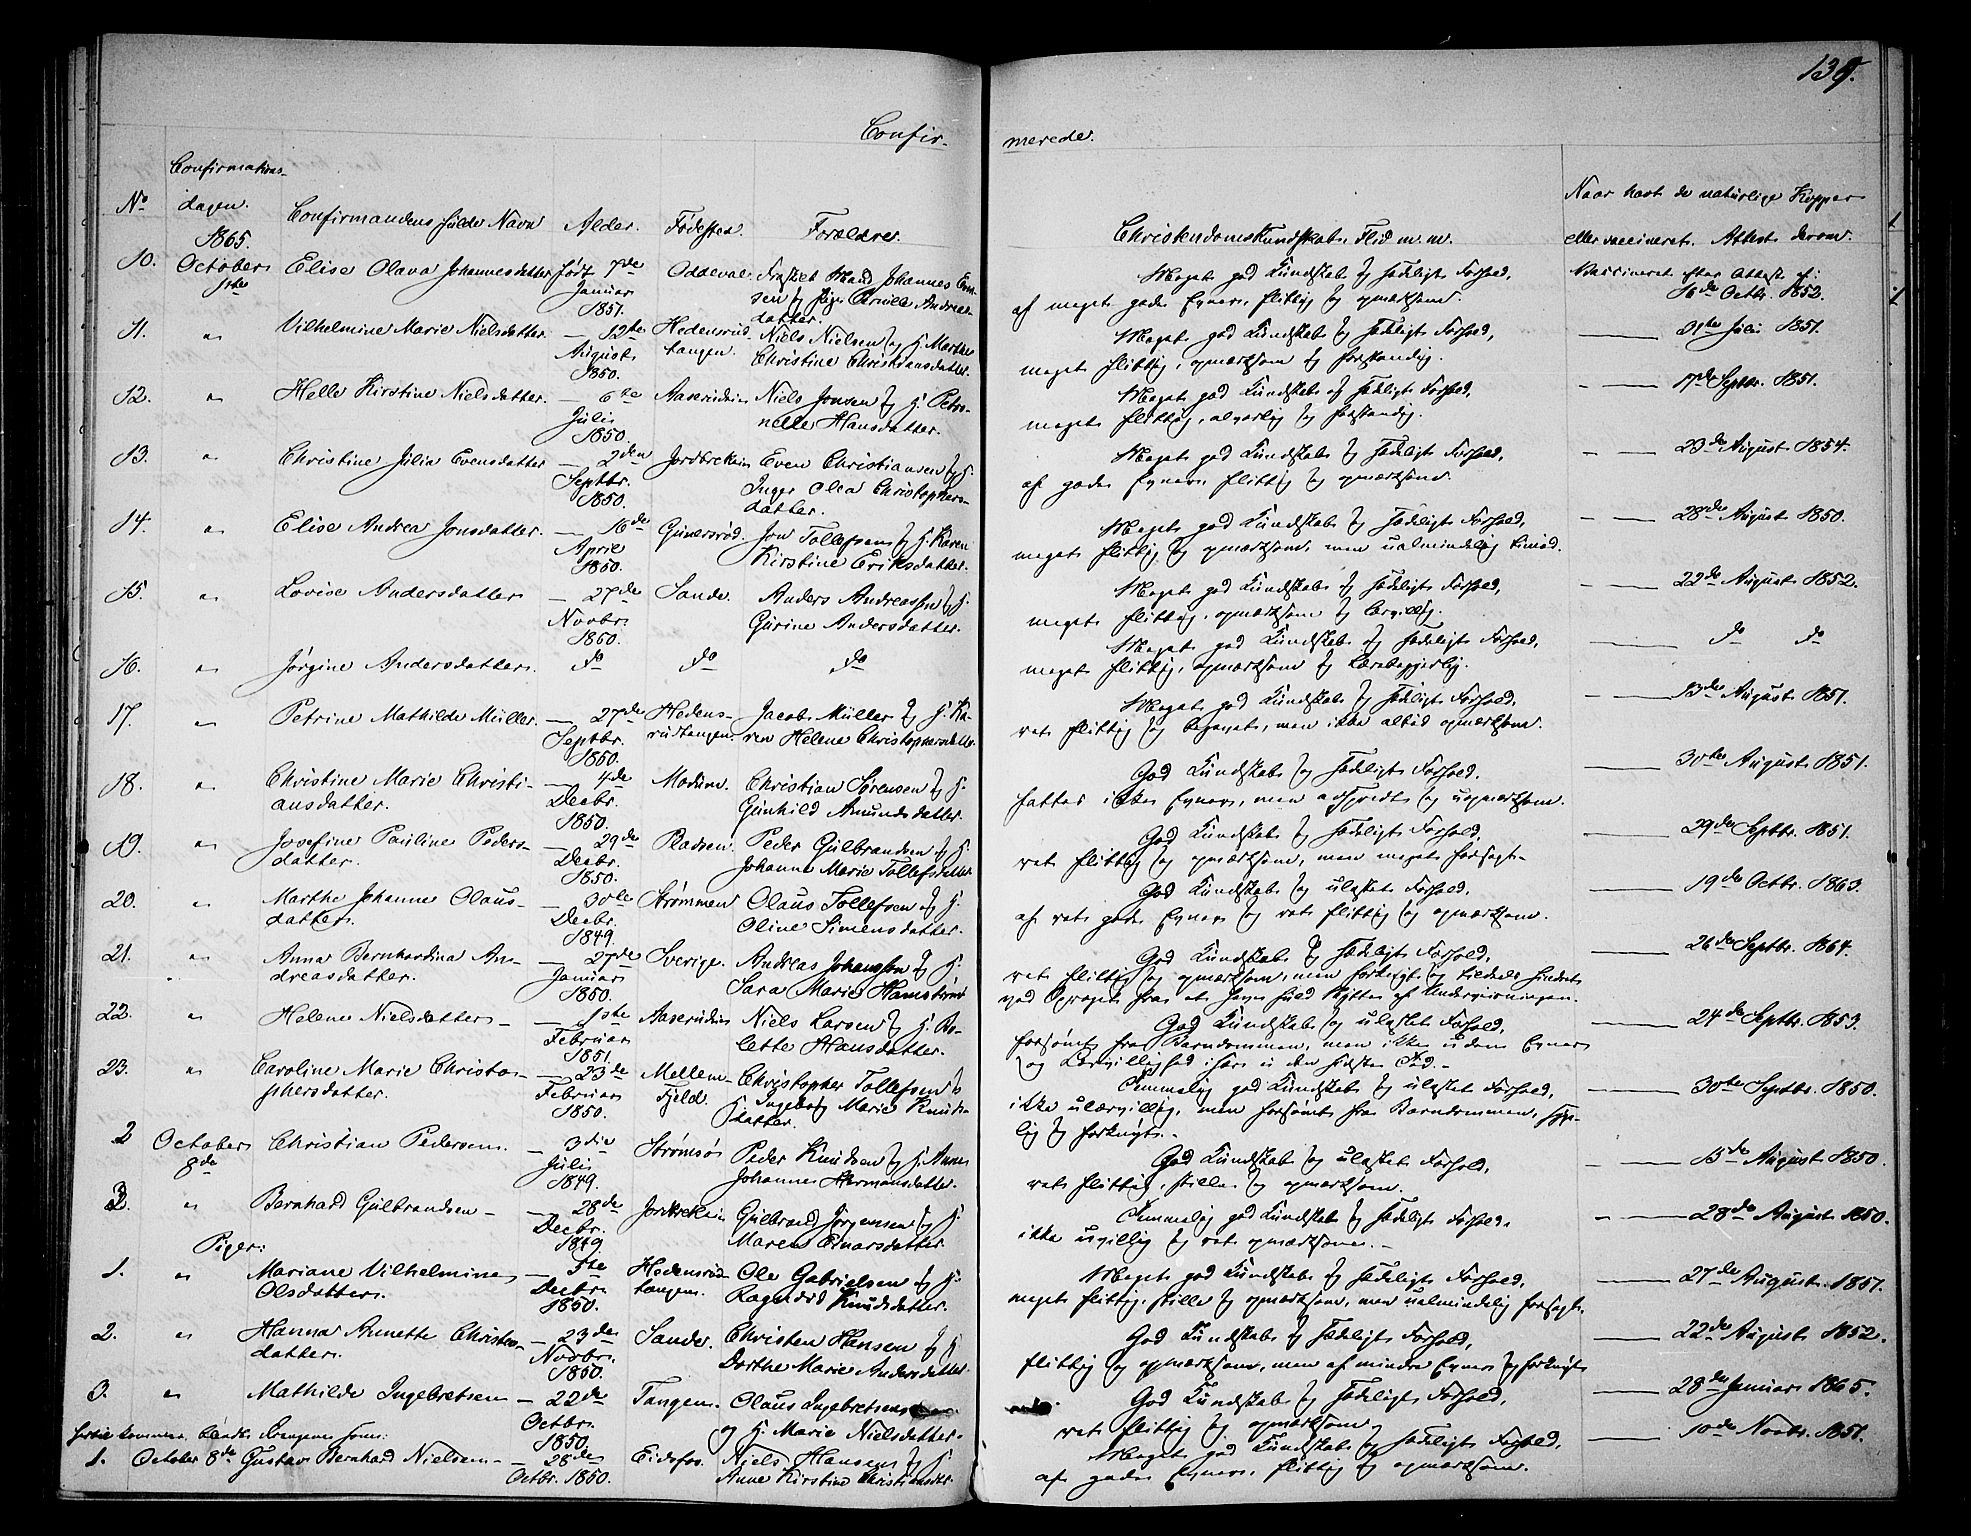 139.
Confir-
merede.
No
Confirmations-
dagen.
1865.
Confirmandens fulde Navn
Alder.
Fødested.
Forældre.
Christendomskundskab, Flid m.m.
Naar havt de naturlige Kopper
eller vaccineret. Attest derom.
10. October 1ste Elise Olava Johannesdatter født 7de Januar 1851. Oddeval
Johannes
datter.
Meget god Kundskab og sædeligt Forhold,
af meget gode Evner, flittig og opmærksom.
Vaccineret efter Attest af:
16de Octbr. 1852.
11. " Vilhelmine Marie Nielsdatter. — 12te August 1850. Hedensrud tangen. Niels Nielsen og H. Marthe
Christine Christiansdatter.
Meget god Kundskab og sædeligt Forhold,
meget flittig, opmærksom og forstandig.
— 31te Juli 1851.
12. " Helle Kirstine Nielsdatter. — 6te Juli 1850. Aaserudein Niels Jonsen og H. Petro-
nelle Hansdatter.
Meget god Kundskab og sædeligt Forhold,
meget flittig, alvorlig og forstandig.
— 17de Septbr. 1851.
13. " Christine Julia Evensdatter — 2den Septbr. 1850. Jordbrekein Even Christiansen og H.
Inger Olea Christophers-
datter.
Meget god Kundskab og sædeligt Forhold,
af gode Evner flittig og opmærksom.
— 23de August 1854.
14. " Elise Andrea Jonsdatter. — 16de April 1850. Gunersrød. Jon Tollefsen og H. Karen
Kirstine Eriksdatter.
Meget god Kundskab og sædeligt Forhold,
meget flittig og opmærksom, men ualmindelig timid.
— 28de August 1850.
15. " Lovise Andersdatter — 27de Novbr. 1850. Sande. Anders Andreassen og H.
Gurine Andersdatter.
Meget god Kundskab og sædeligt Forhold,
meget flittig, opmærksom og lærvillig.
— 22de August 1852.
16. " Jørgine Andersdatter. do do do
Meget god Kundskab og sædeligt Forhold,
meget flittig, opmærksom og Lærebegjerlig.
— do do
17. " Petrine Mathilde Müller. — 27de Septbr. 1850. Hedens-
rudtangen. Jacob Müller og H. Ka-
ren Helene Christophersdatter.
Meget god Kundskab og sædeligt Forhold,
ret flittig og begavet, men ikke altid opmærksom.
— 13de August 1851.
18. " Christine Marie Christi-
ansdatter. — 4de Decbr. 1850. Modum. Christian Sørensen og H.
Gunhild Amundsdatter.
God Kundskab og sædeligt Forhold.
fattes ikke Evner, men adspredt og uopmærksom.
— 30te August 1851.
19. " Josefine Pauline Peders-
datter. — 29de Decbr. 1850. Pladsen. Peder Gulbrandsen og H.
Johanne Marie Tollefsdatter
God Kundskab og sædeligt Forhold,
ret flittig og opmærksom, men meget forsagt.
— 29de Septbr. 1851.
20. " Marthe Johanne Olaus-
datter. — 30te Decbr. 1849. Strømmen Olaus Tollefsen og H.
Oline Simensdatter.
God Kundskab og ulastet Forhold,
af ret gode Evner og ret flittig og opmærksom.
— 19de Octbr. 1863.
21. " Anna Bernhardina An-
dreasdatter. — 27de Januar 1850. Sverige. Andreas Johanssen og H.
Sara Marie
God Kundskab og sædeligt Forhold,
ret flittig og opmærksom, men forknyt og tildeels hindret
ved Sproget fra at have fuld Nytte af Underviisningen.
— 26de Septbr. 1864.
22. " Helene Nielsdatter — 1ste Februar 1851. Aaserudein Niels Larsen og H. Bo-
lette Hansdatter.
God Kundskab og ulastet Forhold,
forsømt fra Barndommen, men ikke uden Evner
og Lærvillighed især i den sidste Tid.
— 24de Septbr. 1853.
23. " Caroline Marie Christo-
phersdatter. — 23de Februar 1850. Mellem-
Fjeld. Christopher Tollefsen &
H. Ingeborg Marie Knuds-
datter.
Temmelig god Kundskab og ulastet Forhold,
ikke ulærvillig, men forsømt fra Barndommen,
lig og forknyt.
— 30te Septbr. 1850.
2 October 8de Christian Pedersen. — 3die Juli 1849. Strømsø Peder Knudsen og H. Anne
Johanne Hermansdatter.
God Kundskab og ulastet Forhold,
ret flittig, stille og opmærksom.
— 15de August 1850.
3. " Bernhard Gulbrandsen — 28de Decbr. 1849. Jordbrekein Gulbrand Jørgensen og H.
Maren Einarsdatter
Temmelig god Kundskab og sædeligt Forhold,
ikke uvillig og ret opmærksom.
— 28de August 1850.
Piger:
1. " Mariane Vilhelmine
Olsdatter. — 5te Decbr. 1850. Hedensrud-
tangen. Ole Gabrielsen og H.
Ragnhild Knudsdatter.
Meget god Kundskab og sædeligt Forhold,
meget flittig, stille og opmærksom, men ualmindelig forsagt.
— 27de August 1851.
2. " Hanna Annette Christens-
datter. — 23de Novbr. 1850. Sande. Christen Hansen og H.
Dorthe Marie Andersdatter.
God Kundskab og sædeligt Forhold,
flittig og opmærksom, men af mindre Evner og forknyt
— 22de August 1852.
3. " Mathilde Ingebretsen — 22de Octbr. 1850. Tangen. Olaus Ingebretsen
og H. Marie Nielsdatter.
God Kundskab og sædeligt Forhold,
ret flittig og opmærksom.
— 28de Januar 1865.
hertil kommer, blandt Drengene
1. October 8de Gustav Bernhard Nielsen — 28de Octbr. 1850. Eidsfos. Niels Hansen og H.
Anne Kirstine Christiansdtr.
Meget god Kundskab og sædeligt Forhold,
af gode Evner, flittig og opmærksom.
— 10de Novbr. 1851.